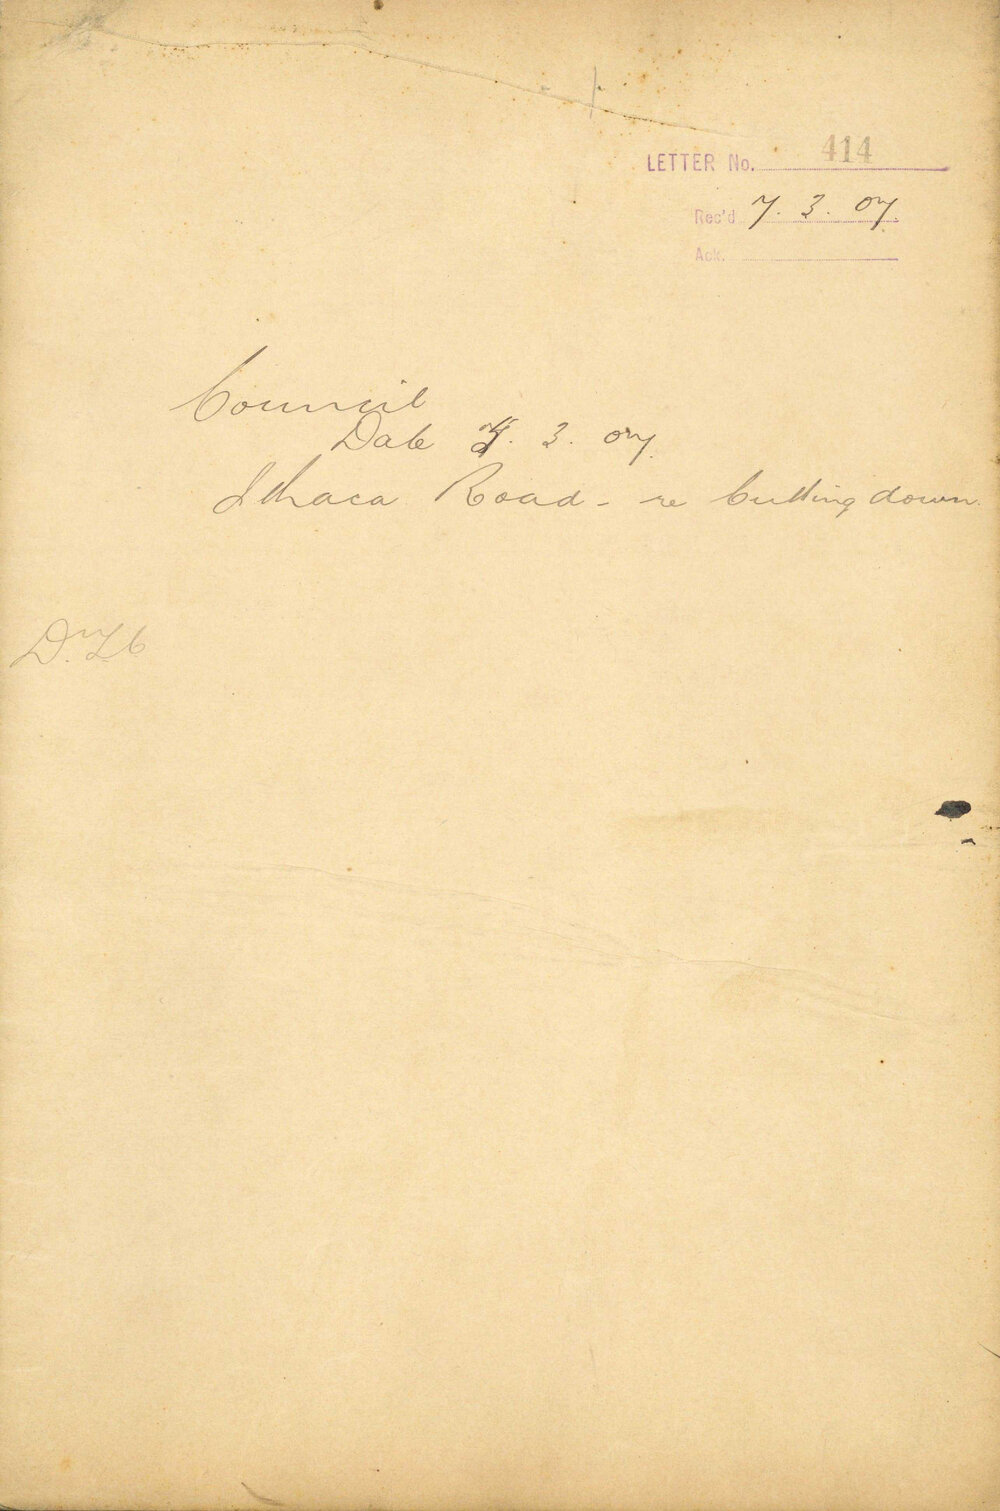 LETTER No. 414
Rec'd 7. 3. 07.
Ack.
Council
Date 7. 3. 07.
Ithaca Road - re Cutting down.